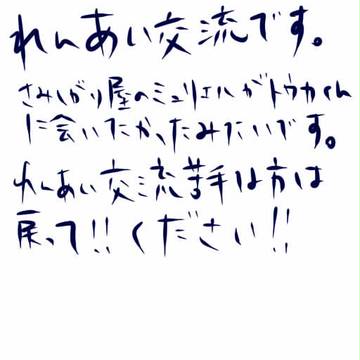 れんあい交流です。
さみしがり屋のミュリエルがトウカくん
に会いたかったみたいです。
れんあい交流苦手な方は
戻って!!ください!!